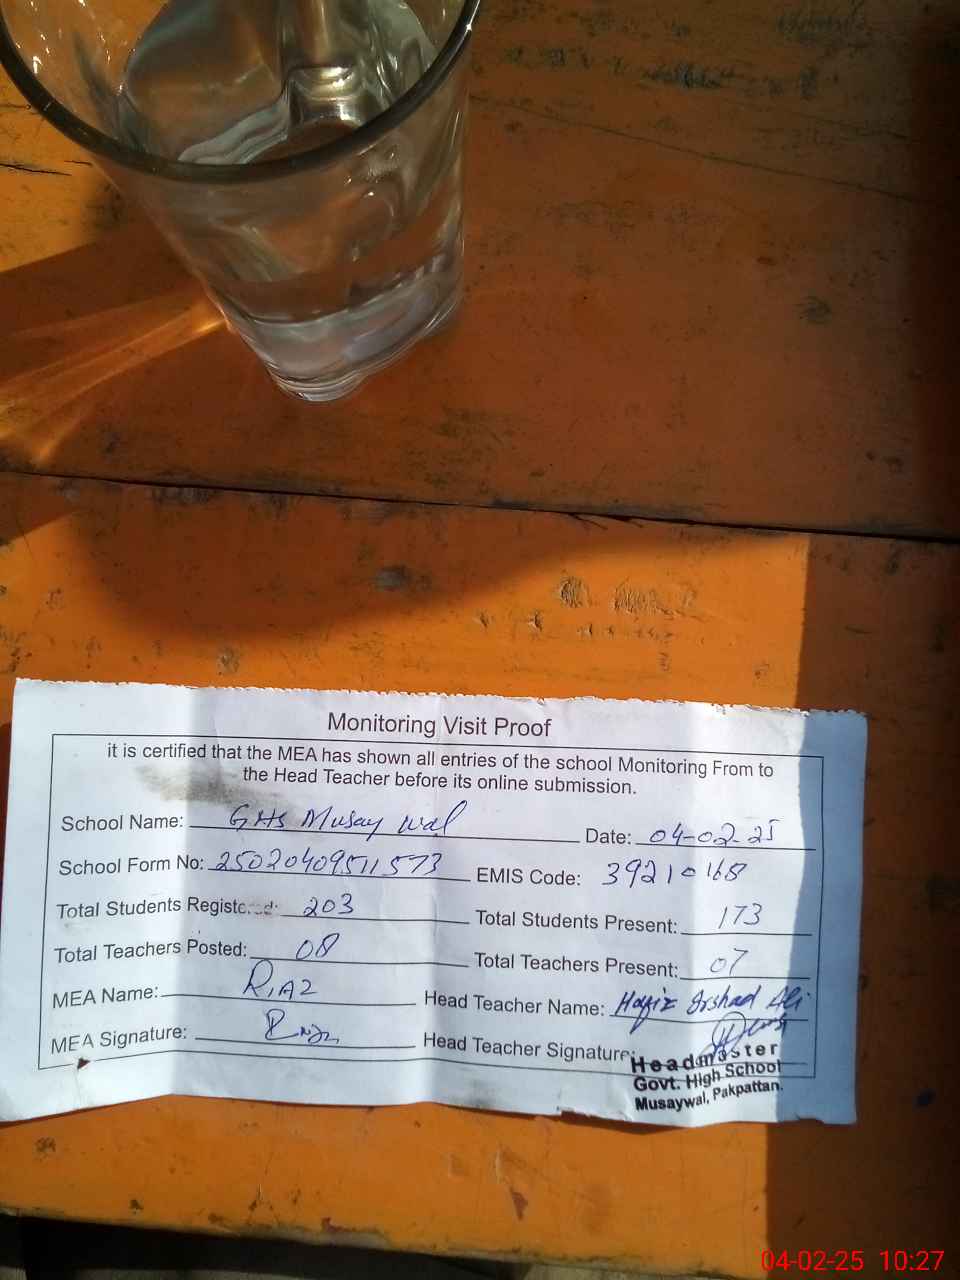 Monitoring Visit Proof
it is certified that the MEA has shown all entries of the school Monitoring From to
the Head Teacher before its online submission.
School Name: GHS Musay wal Date: 04-02-25
School Form No: 25020409511573 EMIS Code: 39210168
Total Students Registered: 203 Total Students Present: 173
Total Teachers Posted: 08 Total Teachers Present: 07
MEA Name: RiAZ Head Teacher Name: Hafiz Irshad Ali
MEA Signature: Head Teacher Signature:
Headmaster
Govt. High School
Musaywal, Pakpattan.
04-02-25 10:27